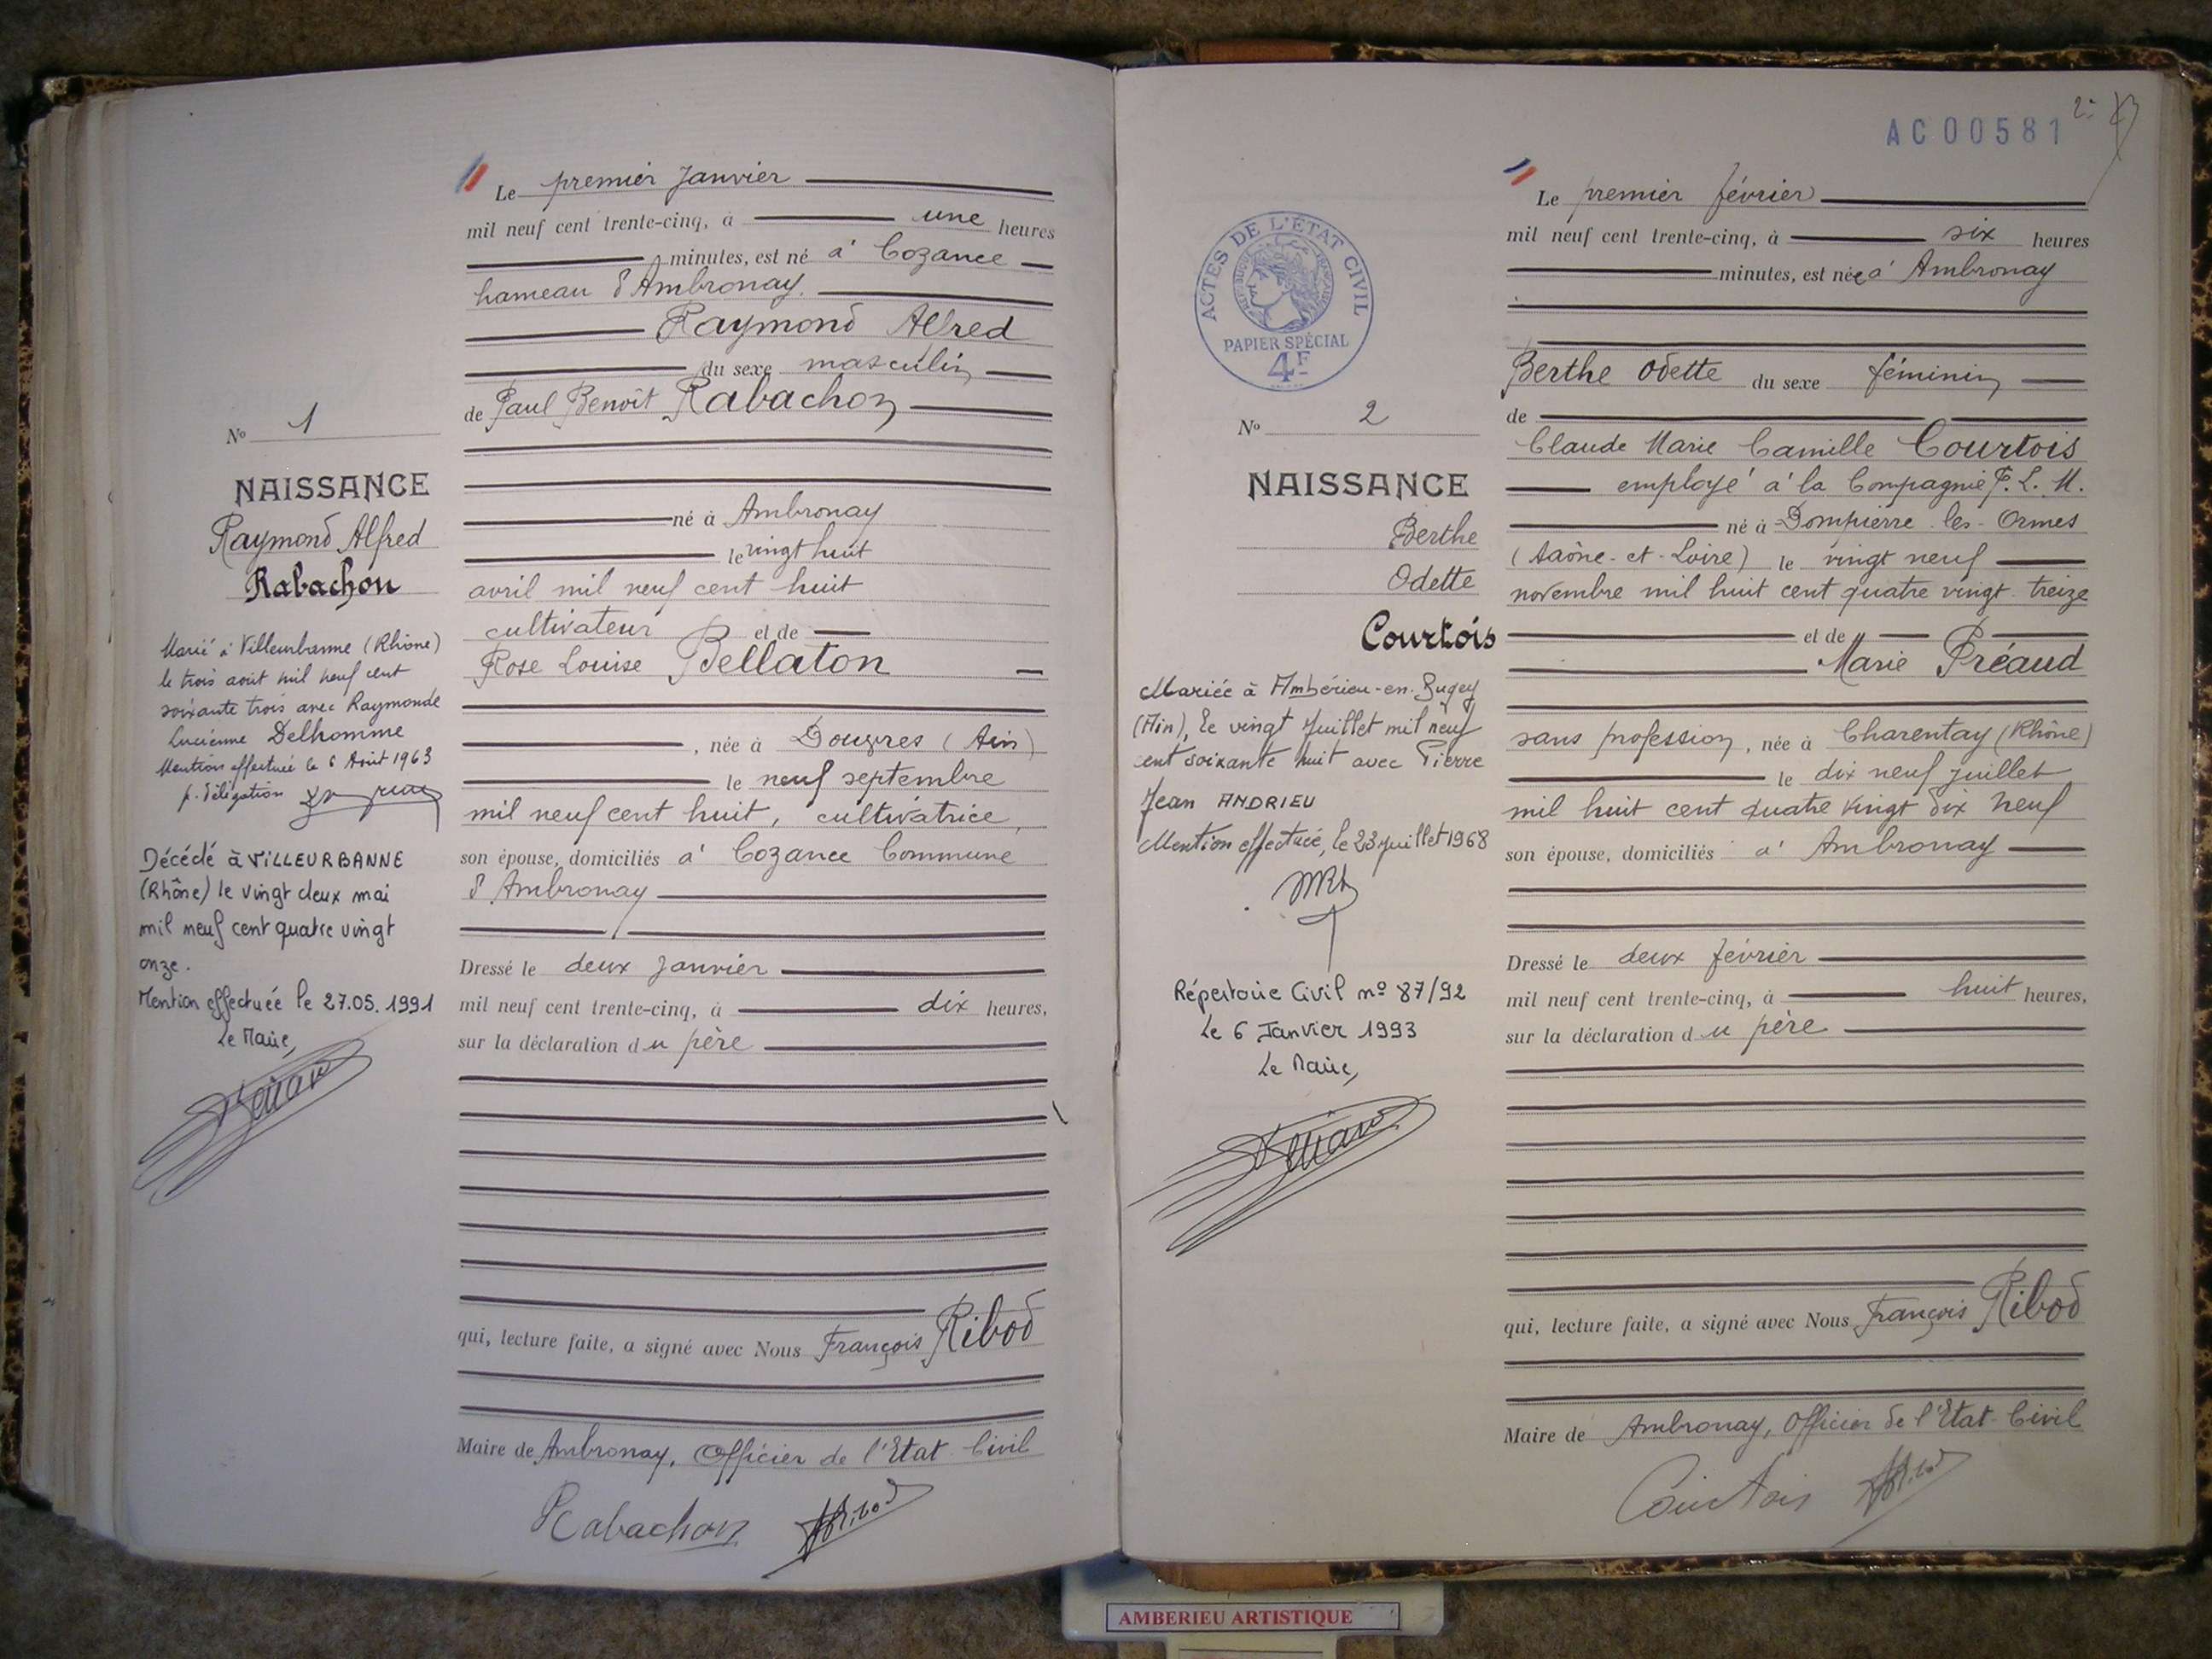 Le premier Janvier
mil neuf cent trente-cinq, à une heures
minutes, est né à Cozance
hameau d'Ambronay.
Raymond Alfred
du sexe masculin
de Paul Benoît Rabachon
né à Ambronay
le vingt huit
avril mil neuf cent huit
cultivateur et de
Rose Louise Bellaton
, née à Douvres (Ain)
le neuf septembre
mil neuf cent huit, cultivatrice,
son épouse, domiciliés à Cozance Commune
d'Ambronay
Dressé le deux Janvier
mil neuf cent trente-cinq, à dix heures,
sur la déclaration du père
qui, lecture faite, a signé avec Nous François Ribod
Maire de Ambronay, Officier de l'Etat-Civil
Rabachon
No 1
NAISSANCE
Raymond Alfred
Rabachon
Marié à Villeurbanne (Rhône)
le trois août mil neuf cent
soixante trois avec Raymonde
Lucienne Delhomme
Mention effectuée le 6 Août 1963
p. délégation
Décédé à VILLEURBANNE
(Rhône) le vingt deux mai
mil neuf cent quatre vingt
onze.
Mention effectuée le 27.05.1991
Le Maire,
AC00581
2
Le premier février
mil neuf cent trente-cinq, à six heures
minutes, est née à Ambronay
Berthe Odette du sexe féminin
de
Claude Marie Camille Courtois
employé à la Compagnie P. L. M.
né à Dompierre-les-Ormes
(Saône-et-Loire) le vingt neuf
novembre mil huit cent quatre vingt treize
et de
Marie Préaud
sans profession, née à Charentay (Rhône)
le dix neuf juillet
mil huit cent quatre vingt dix neuf
son épouse, domiciliés à Ambronay
Dressé le deux février
mil neuf cent trente-cinq, à huit heures,
sur la déclaration du père
qui, lecture faite, a signé avec Nous François Ribod
Maire de Ambronay, Officier de l'Etat-Civil
Courtois
ACTES DE L'ÉTAT CIVIL
RÉPUBLIQUE FRANÇAISE
PAPIER SPÉCIAL
4F
No 2
NAISSANCE
Berthe
Odette
Courtois
Mariée à Ambérieu-en-Bugey
(Ain), le vingt Juillet mil neuf
cent soixante huit avec Pierre
Jean ANDRIEU
Mention effectuée, le 23 juillet 1968
Répertoire Civil nº 87/92
Le 6 Janvier 1993
Le Maire,
AMBERIEU ARTISTIQUE